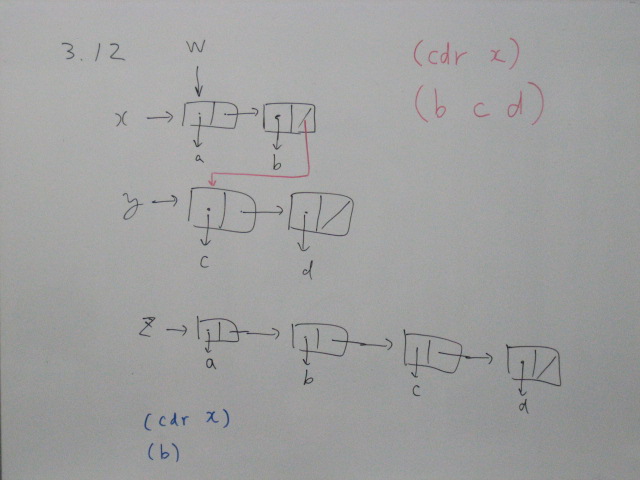 3.12
w
(cdr x)
(b c d)
x
a
b
y
c
d
z
a
b
c
d
(cdr x)
(b)